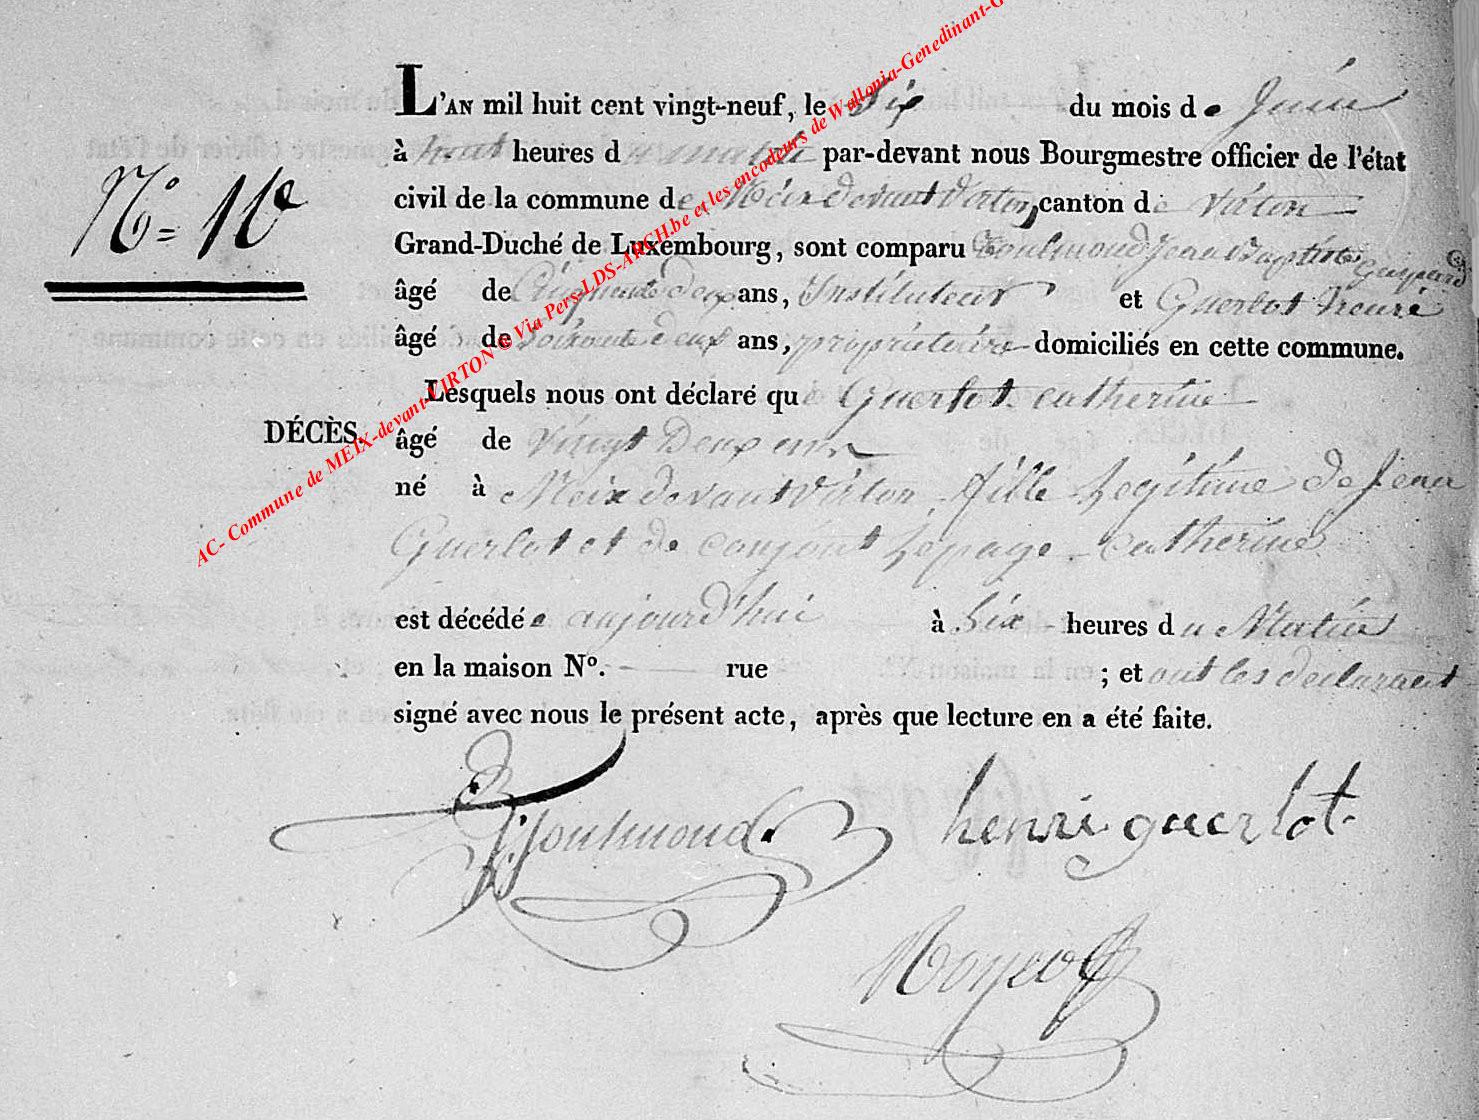 L'AN mil huit cent vingt-neuf, le Six du mois de Juin
à huit heures du matin par-devant nous Bourgmestre officier de l'état
N.° = 11e
civil de la commune de Meix devant Virton, canton de Virton
Grand-Duché de Luxembourg, sont comparu Toulmond Jean Baptiste Gaspard
âgé de Cinquante deux ans, Instituteur et Guerlot Henri
âgé de Soixante deux ans, propriétaire domiciliés en cette commune.
Lesquels nous ont déclaré qu Guerlot catherine
DÉCÈS. âgé de vingt Deux ans
né à Meix devant Virton, fille Legitime de Jean
Guerlot et de conjoint Lepage Catherine
est décédée aujourd'hui à Six heures du Matin
en la maison N°. rue ; et ont les declarant
signé avec nous le présent acte, après que lecture en a été faite.
Toulmond henri guerlot
AC- Commune de MEIX-devant-VIRTON © Via Pers-LDS-ARCH.be et les encodeurs de Wallonia-Genedinant-G